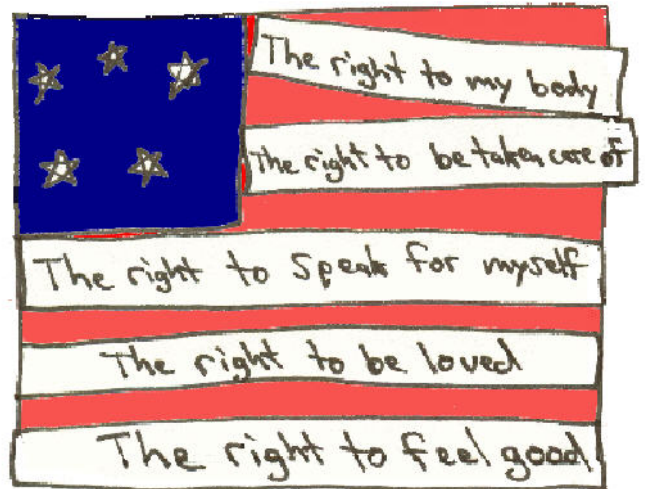 The right to my body
The right to be taken care of
The right to speak for myself
The right to be loved
The right to feel good